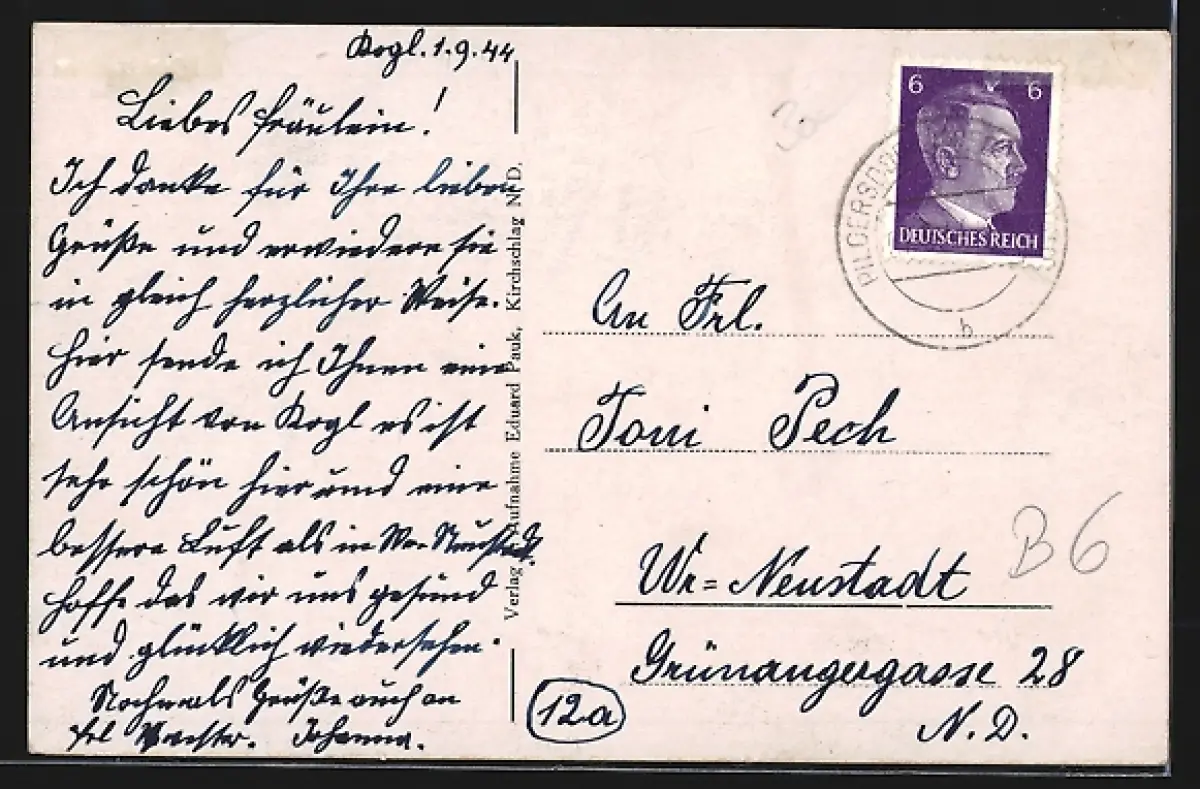 Kogl. 1.9.44
Liebes Fräulein!
Ich danke für Ihre lieben
Grüße und erwiedere sie
in gleich herzlicher Weise.
Hier sende ich Ihnen eine
Ansicht von Kogl es ist
sehr schön hier und eine
bessere Luft als in Wr. Neustadt.
Hoffe das wir uns gesund
und glücklich wiedersehen.
Nochmals Grüße auch an
Frl Johanna.
Verlag Aufnahme Eduard Pauk, Kirchschlag N. D.
6 6
DEUTSCHES REICH
PILGERSDO
b
An Frl.
Toni Pech
Wr=Neustadt
Grünangergasse 28
N.D.
12a
B6